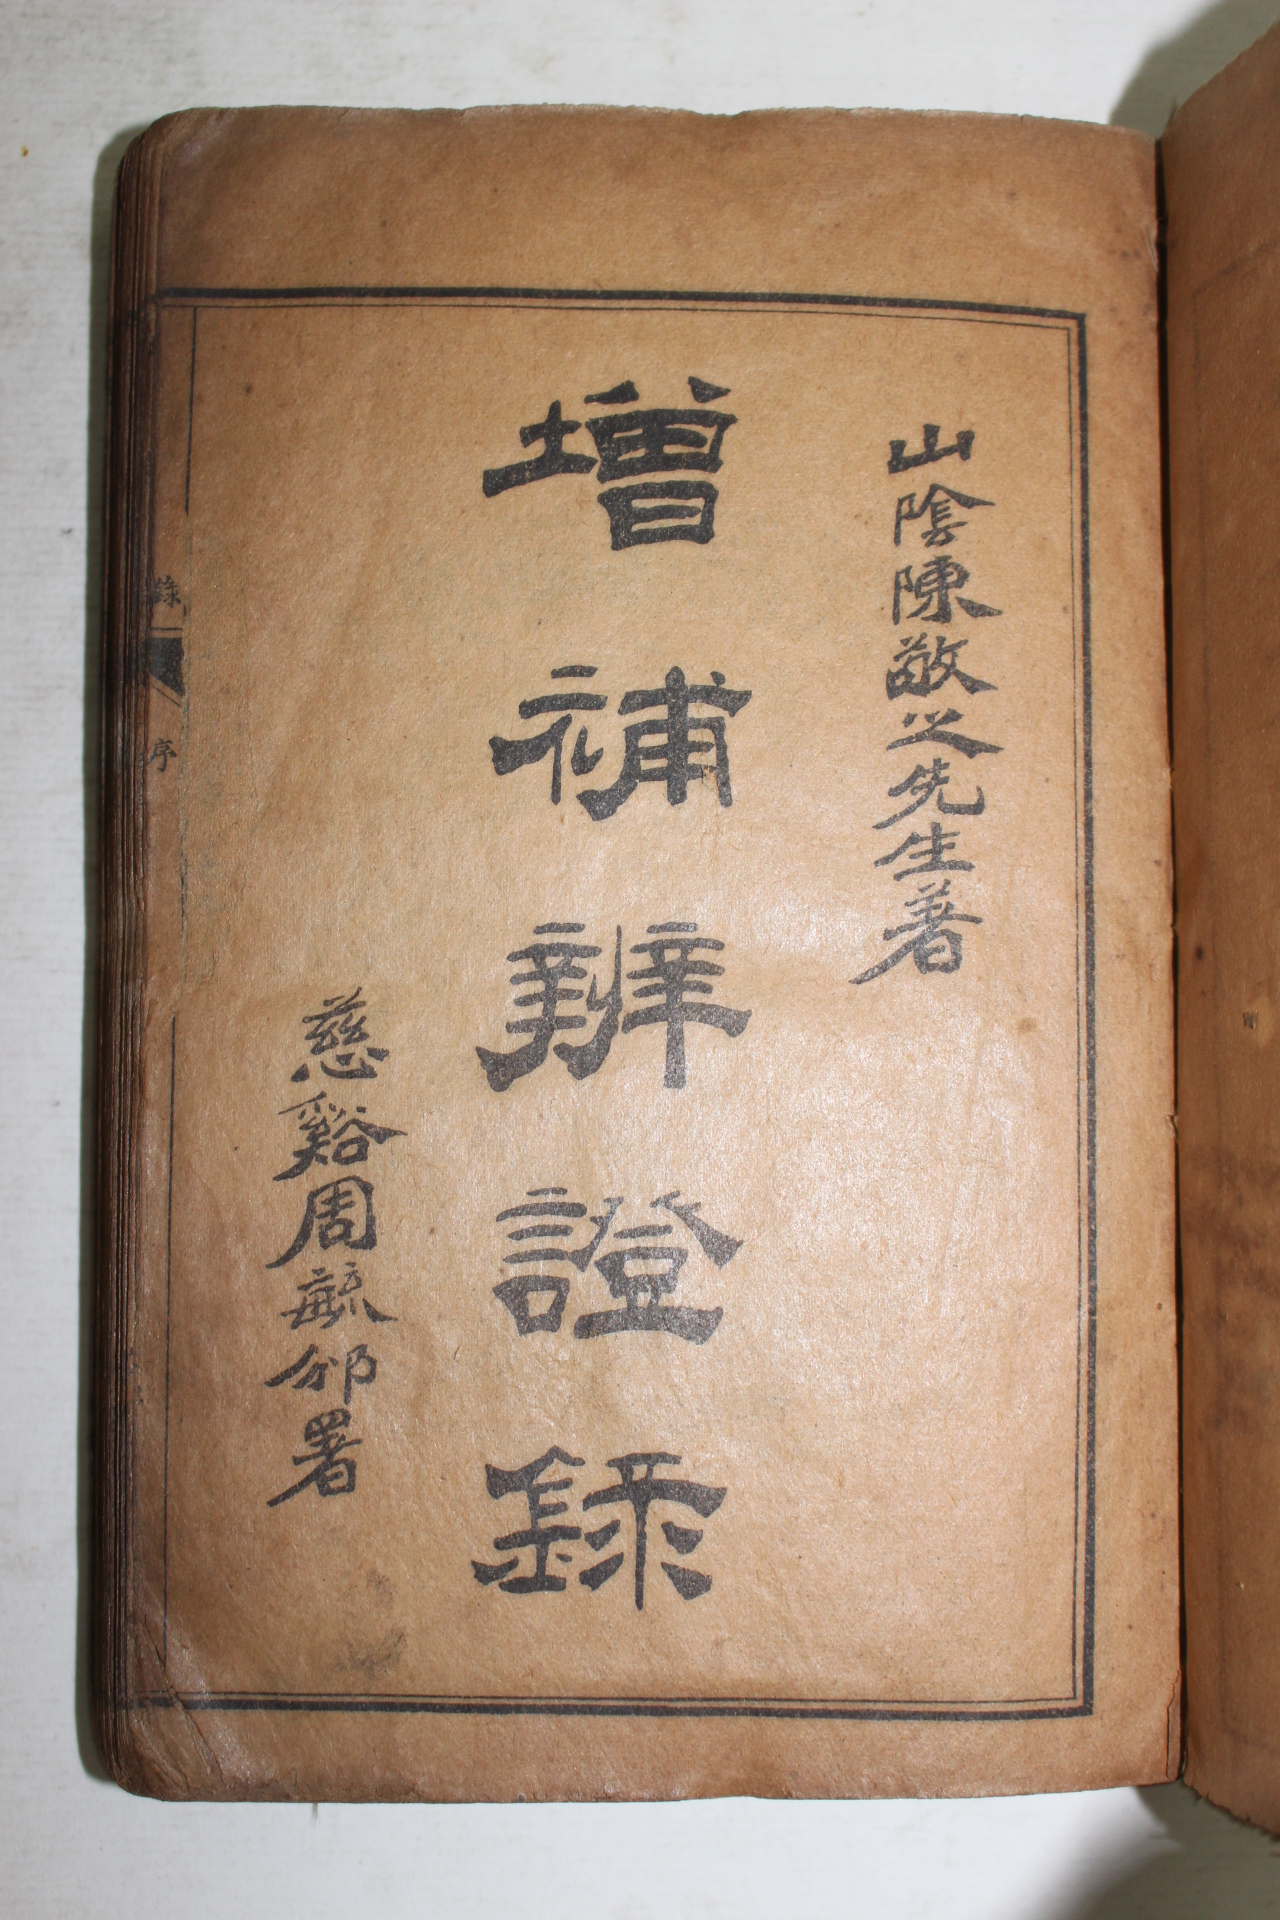 山陰陳敬之先生著
增補辨證錄
慈谿周毓邠署
錄
序